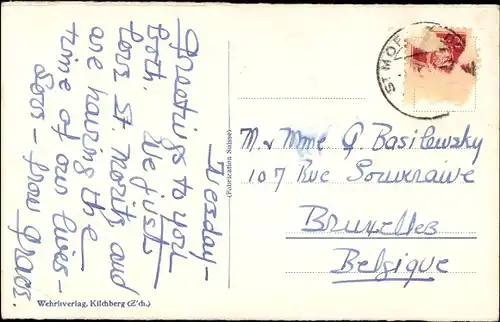 Tuesday -
Greetings to you
Both. We just
Love St Moritz and
are having the
time of our lives -
Love - from
Wehrliverlag, Kilchberg (Z'ch.)
(Fabrication Suisse)
ST MOR
M. & Mme G. Basilewsky
107 Rue Souveraine
Bruxelles
Belgique